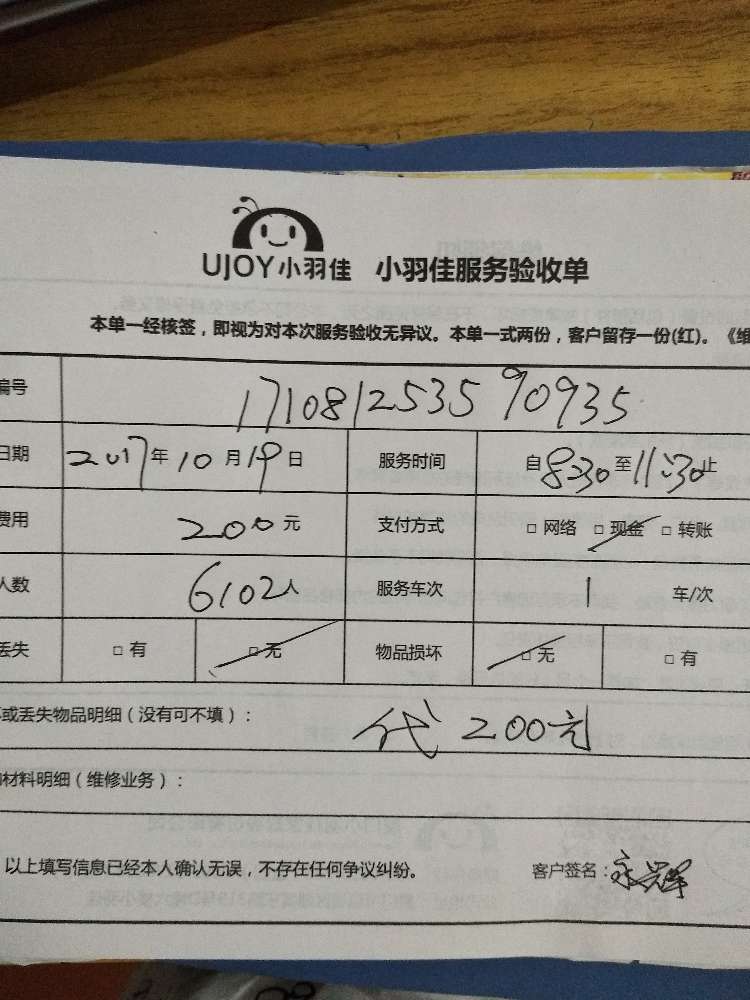 UJOY小羽佳 小羽佳服务验收单
本单一经核签，即视为对本次服务验收无异议。本单一式两份，客户留存一份(红)。《维
编号 17108125359 0935
日期 2017年10月19日 服务时间 自8:30至11:30止
费用 200元 支付方式 □ 网络 □ 现金 □ 转账
人数 6102人 服务车次 1 车/次
丢失 □ 有 □ 无 物品损坏 □ 无 □ 有
或丢失物品明细（没有可不填）： 代 200元
材料明细（维修业务）：
以上填写信息已经本人确认无误，不存在任何争议纠纷。 客户签名：永辉